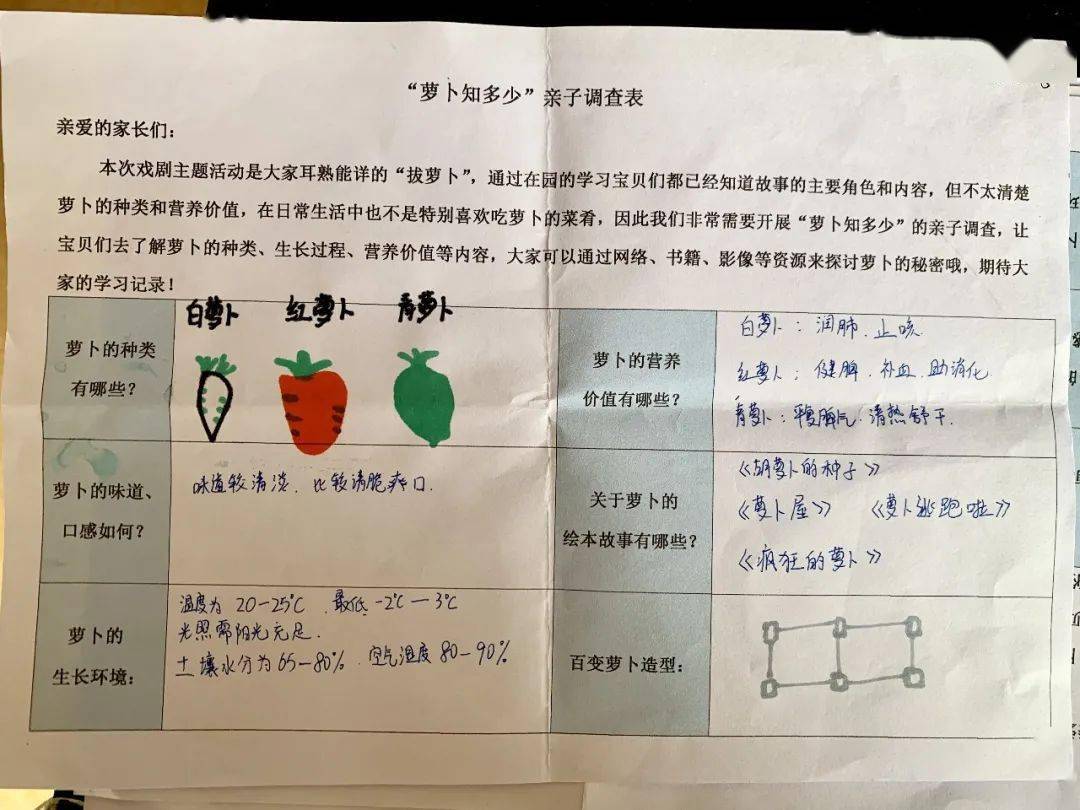 “萝卜知多少”亲子调查表
亲爱的家长们：
本次戏剧主题活动是大家耳熟能详的“拔萝卜”，通过在园的学习宝贝们都已经知道故事的主要角色和内容，但不太清楚
萝卜的种类和营养价值，在日常生活中也不是特别喜欢吃萝卜的菜肴，因此我们非常需要开展“萝卜知多少”的亲子调查，让
宝贝们去了解萝卜的种类、生长过程、营养价值等内容，大家可以通过网络、书籍、影像等资源来探讨萝卜的秘密哦，期待大
家的学习记录！
萝卜的种类
有哪些？
白萝卜 红萝卜 青萝卜
萝卜的营养
价值有哪些？
白萝卜：润肺．止咳
红萝卜：健脾．补血．助消化
青萝卜：脾气．清热舒干．
萝卜的味道、
口感如何？
味道较清淡．比较清脆爽口．
关于萝卜的
绘本故事有哪些？
《胡萝卜的种子》
《萝卜屋》 《萝卜逃跑啦》
《疯狂的萝卜》
萝卜的
生长环境：
温度为 20－25℃．最低 -2℃－3℃
光照需阳光充足．
土壤水分为65－80%．空气湿度80－90%
百变萝卜造型：